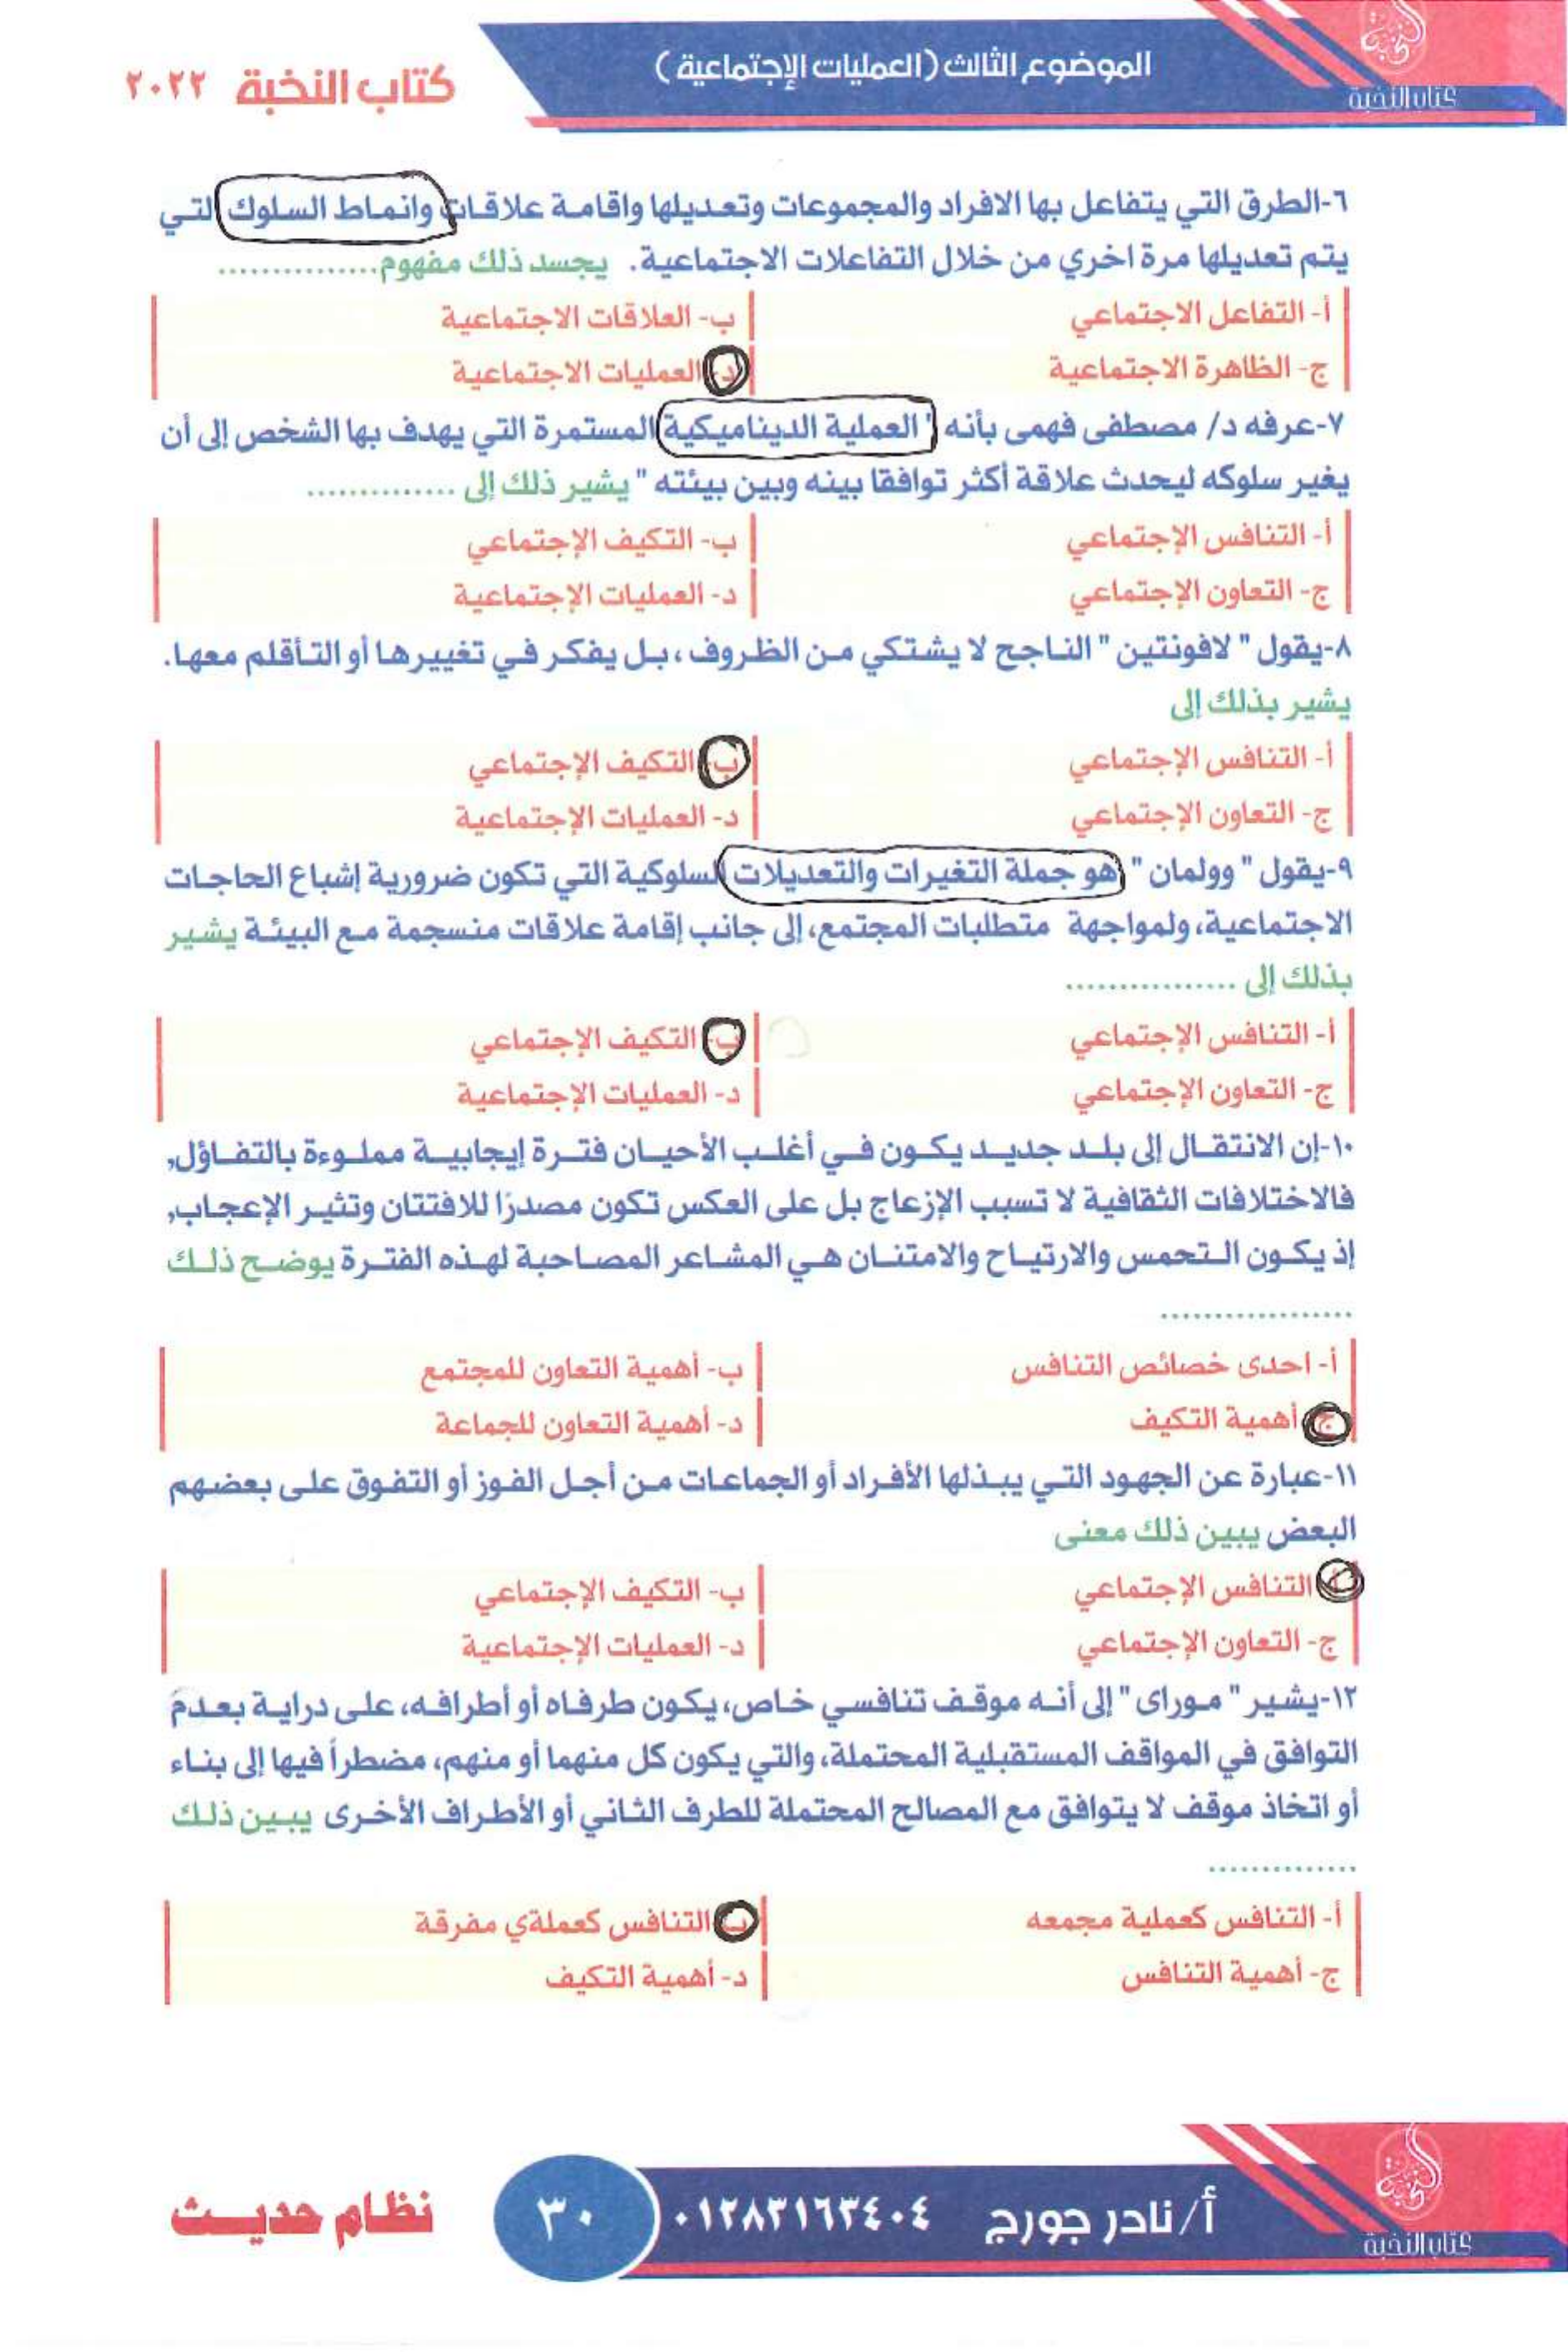 كتاب النخبة
الموضوع الثالث (العمليات الإجتماعية)
كتاب النخبة ٢٠٢٢
٦-الطرق التي يتفاعل بها الافراد والمجموعات وتعديلها واقامة علاقات وانماط السلوك التي
يتم تعديلها مرة اخري من خلال التفاعلات الاجتماعية. يجسد ذلك مفهوم...............
أ- التفاعل الاجتماعي
ب- العلاقات الاجتماعية
ج- الظاهرة الاجتماعية
د- العمليات الاجتماعية
٧-عرفه د/ مصطفى فهمى بأنه "العملية الديناميكية المستمرة التي يهدف بها الشخص إلى أن
يغير سلوكه ليحدث علاقة أكثر توافقا بينه وبين بيئته " يشير ذلك إلى ..............
أ- التنافس الإجتماعي
ب- التكيف الإجتماعي
ج- التعاون الإجتماعي
د- العمليات الإجتماعية
٨-يقول " لافونتين " الناجح لا يشتكي من الظروف ، بل يفكر في تغييرها أو التأقلم معها.
يشير بذلك إلى
أ- التنافس الإجتماعي
ب- التكيف الإجتماعي
ج- التعاون الإجتماعي
د- العمليات الإجتماعية
٩-يقول " وولمان " هو جملة التغيرات والتعديلات السلوكية التي تكون ضرورية إشباع الحاجات
الاجتماعية، ولمواجهة متطلبات المجتمع، إلى جانب إقامة علاقات منسجمة مع البيئة يشير
بذلك إلى ................
أ- التنافس الإجتماعي
ب- التكيف الإجتماعي
ج- التعاون الإجتماعي
د- العمليات الإجتماعية
١٠-إن الانتقال إلى بلد جديد يكون في أغلب الأحيان فترة إيجابية مملوءة بالتفاؤل,
فالاختلافات الثقافية لا تسبب الإزعاج بل على العكس تكون مصدرًا للافتتان وتثير الإعجاب,
إذ يكون التحمس والارتياح والامتنان هي المشاعر المصاحبة لهذه الفترة يوضح ذلك
..................
أ- احدى خصائص التنافس
ب- أهمية التعاون للمجتمع
ج- أهمية التكيف
د- أهمية التعاون للجماعة
١١-عبارة عن الجهود التي يبذلها الأفراد أو الجماعات من أجل الفوز أو التفوق على بعضهم
البعض يبين ذلك معنى
أ- التنافس الإجتماعي
ب- التكيف الإجتماعي
ج- التعاون الإجتماعي
د- العمليات الإجتماعية
١٢-يشير " موراى " إلى أنه موقف تنافسي خاص، يكون طرفاه أو أطرافه، على دراية بعدم
التوافق في المواقف المستقبلية المحتملة، والتي يكون كل منهما أو منهم، مضطراً فيها إلى بناء
أو اتخاذ موقف لا يتوافق مع المصالح المحتملة للطرف الثاني أو الأطراف الأخرى يبين ذلك
..............
أ- التنافس كعملية مجمعه
ب- التنافس كعملةي مفرقة
ج- أهمية التنافس
د- أهمية التكيف
كتاب النخبة
أ/ نادر جورج ٠١٢٨٣١٦٣٤٠٤
٣٠
نظام حديث